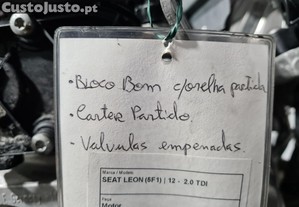 CustoJusto.pt
• Bloco Bom c/orelha partida
• Carter Partido.
• Valvulas empenadas.
Marca / Modelo
SEAT LEON (5F1) | 12 - 2.0 TDI
Peça
Motor